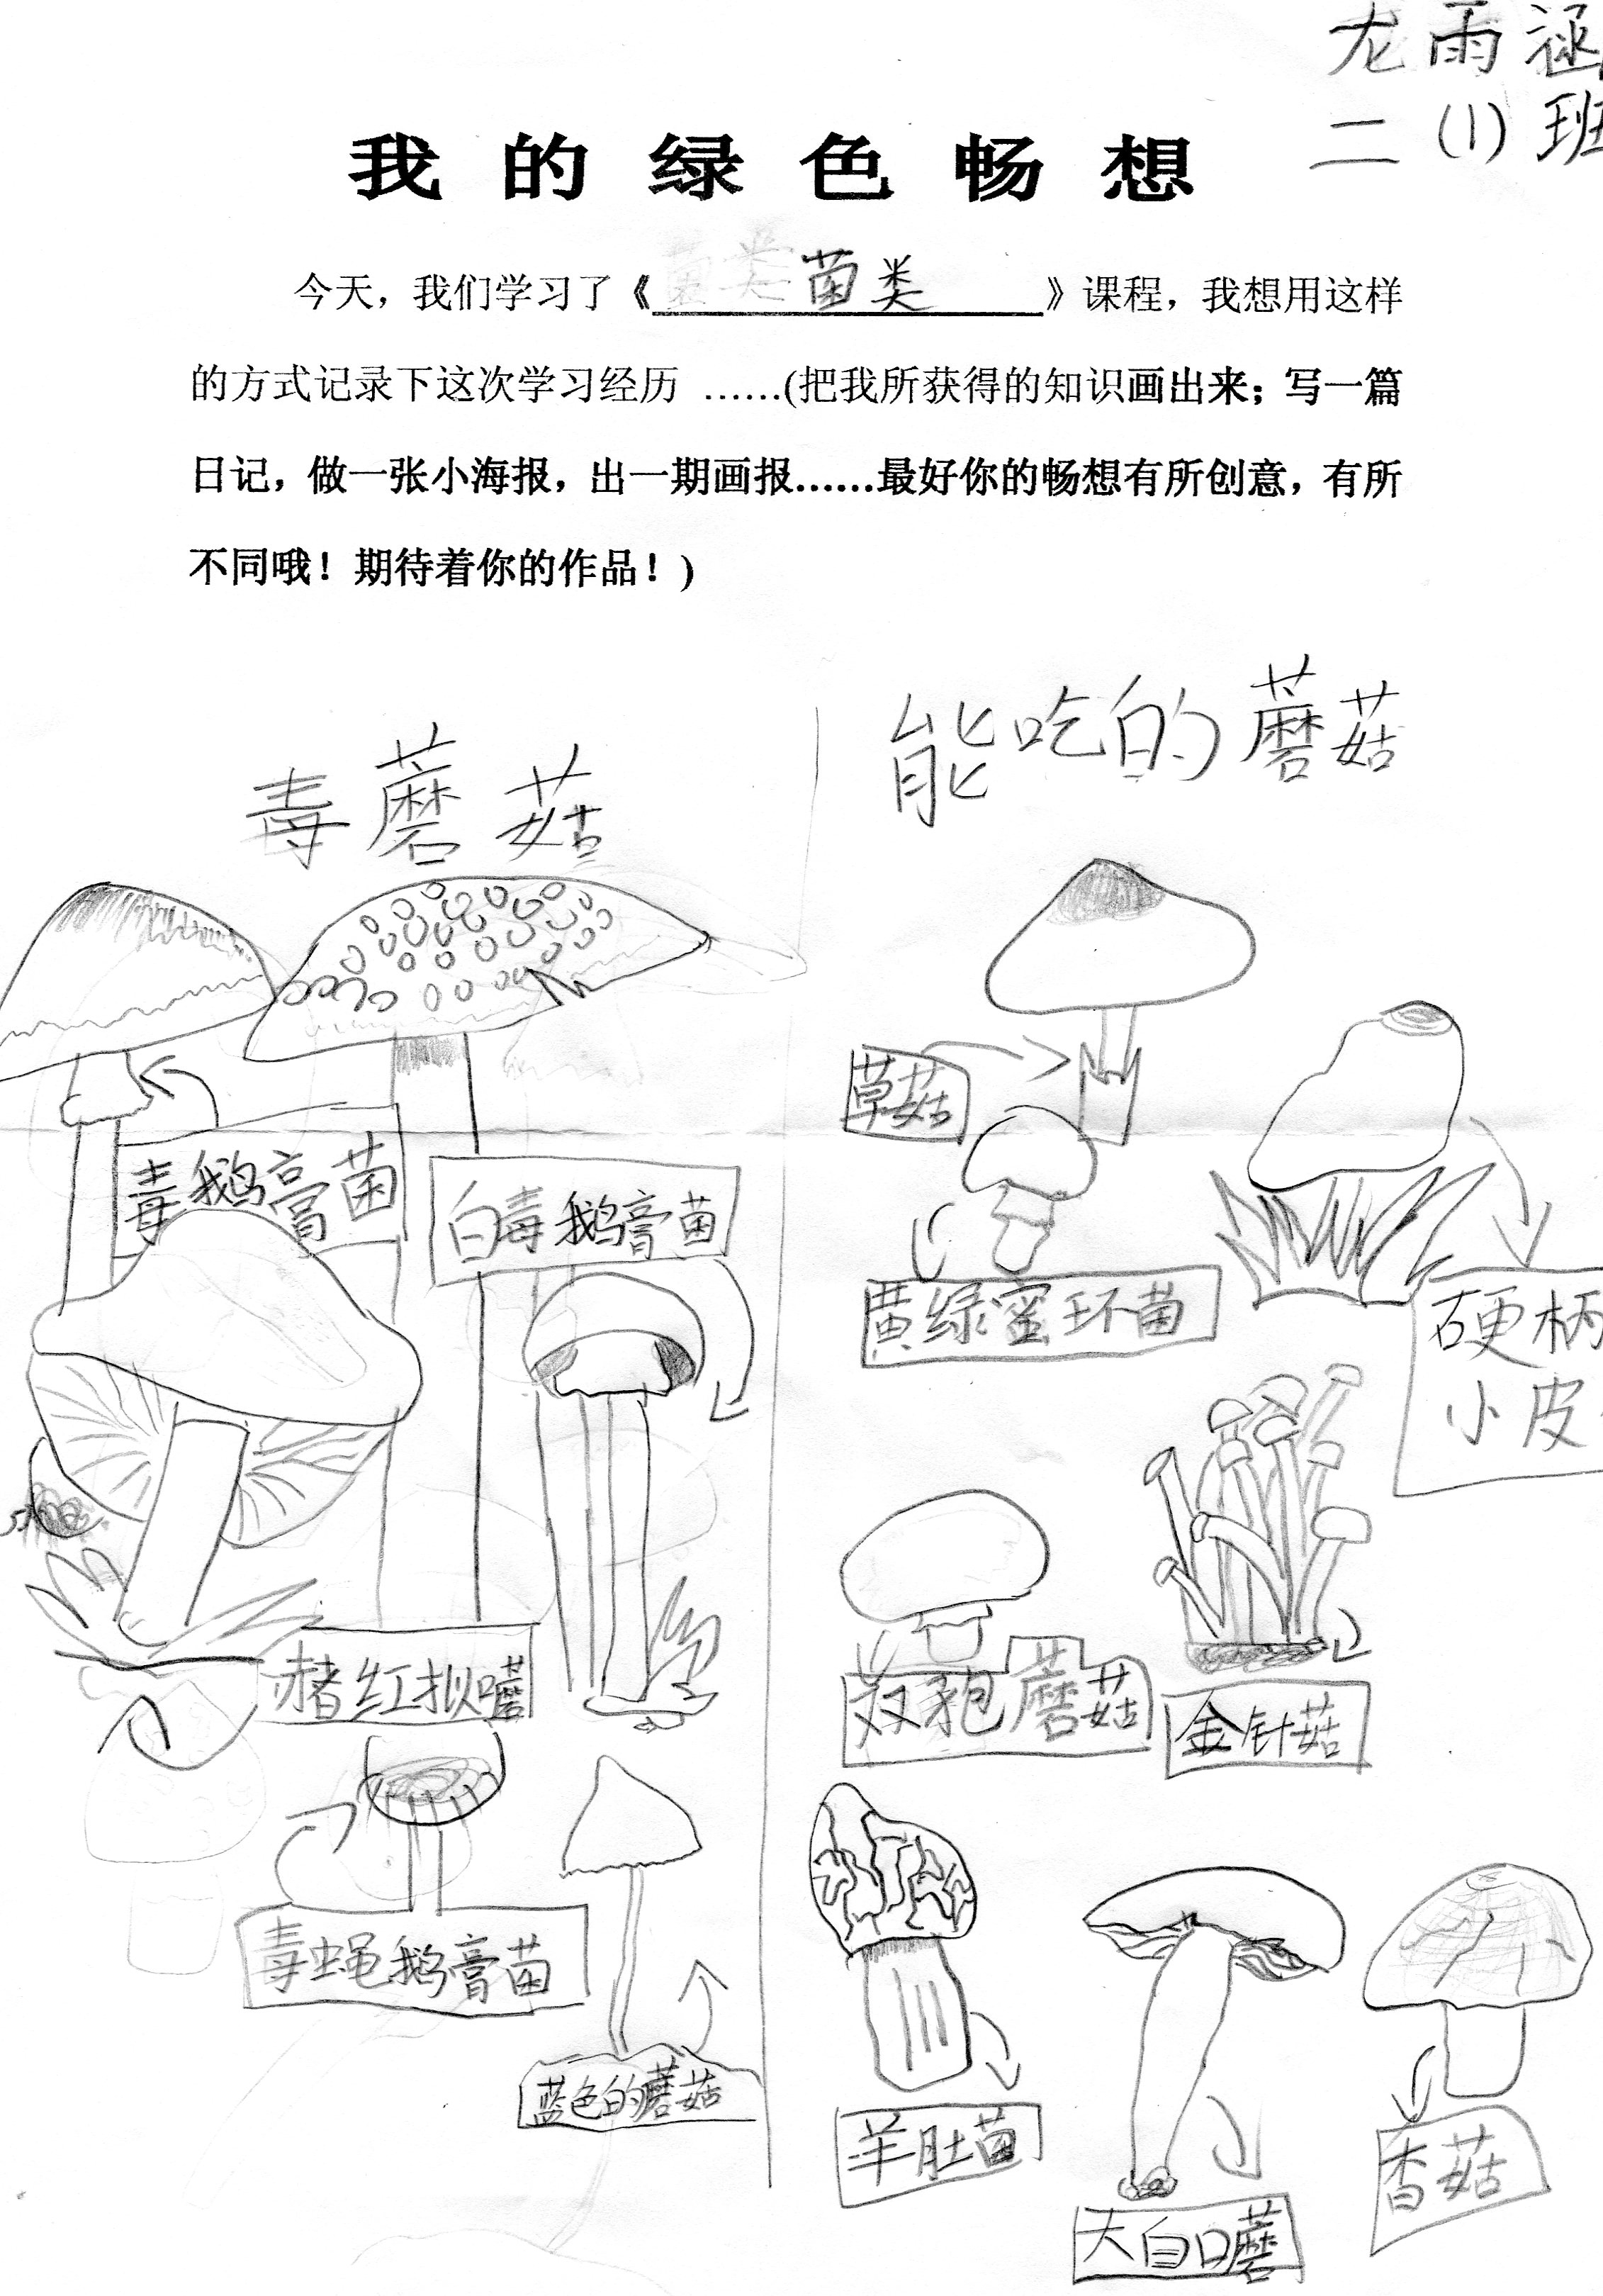 龙雨涵
二(1)班
我的绿色畅想
今天，我们学习了《菌类》课程，我想用这样
的方式记录下这次学习经历 ……(把我所获得的知识画出来；写一篇
日记，做一张小海报，出一期画报……最好你的畅想有所创意，有所
不同哦！期待着你的作品！)
毒蘑菇
毒鹅膏菌
白毒鹅膏菌
赭红拟口蘑
毒蝇鹅膏菌
蓝色的蘑菇
能吃的蘑菇
草菇
黄绿蜜环菌
硬柄
小皮
双孢蘑菇
金针菇
羊肚菌
大白口蘑
香菇